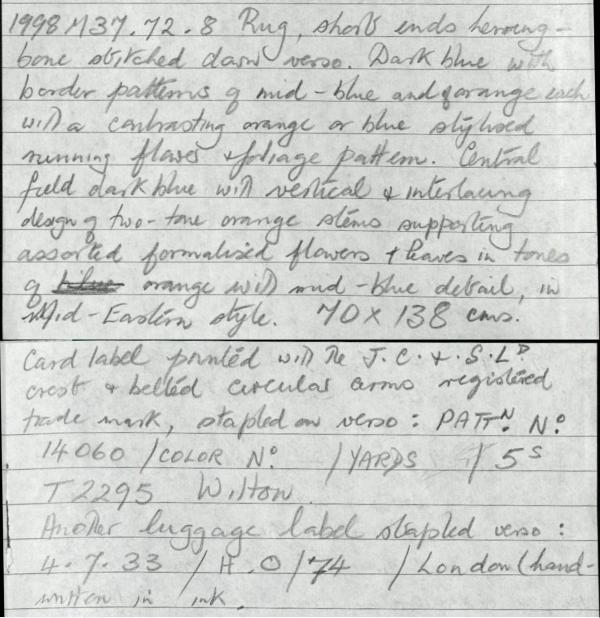 1998 M37.72.8 Rug, short ends herring-
bone stitched down verso. Dark blue with
border patterns of mid-blue and orange each
with a contrasting orange or blue stylised
running flower & foliage pattern. Central
field dark blue with vertical & interlacing
design of two-tone orange stems supporting
assorted formalised flowers & leaves in tones
of orange with mid-blue detail, in
Mid-Eastern style. 70 x 138 cms.
Card label printed with the J.C.&.S.Lᴰ
crest & belted circular arms registered
trade mark, stapled on verso: PATTᴺ. Nº.
14060 /COLOR Nº /YARDS / 5ˢ
T2295 Wilton.
Another luggage label stapled verso:
4.7.33 /H.O/74 /London (hand-
written in ink.